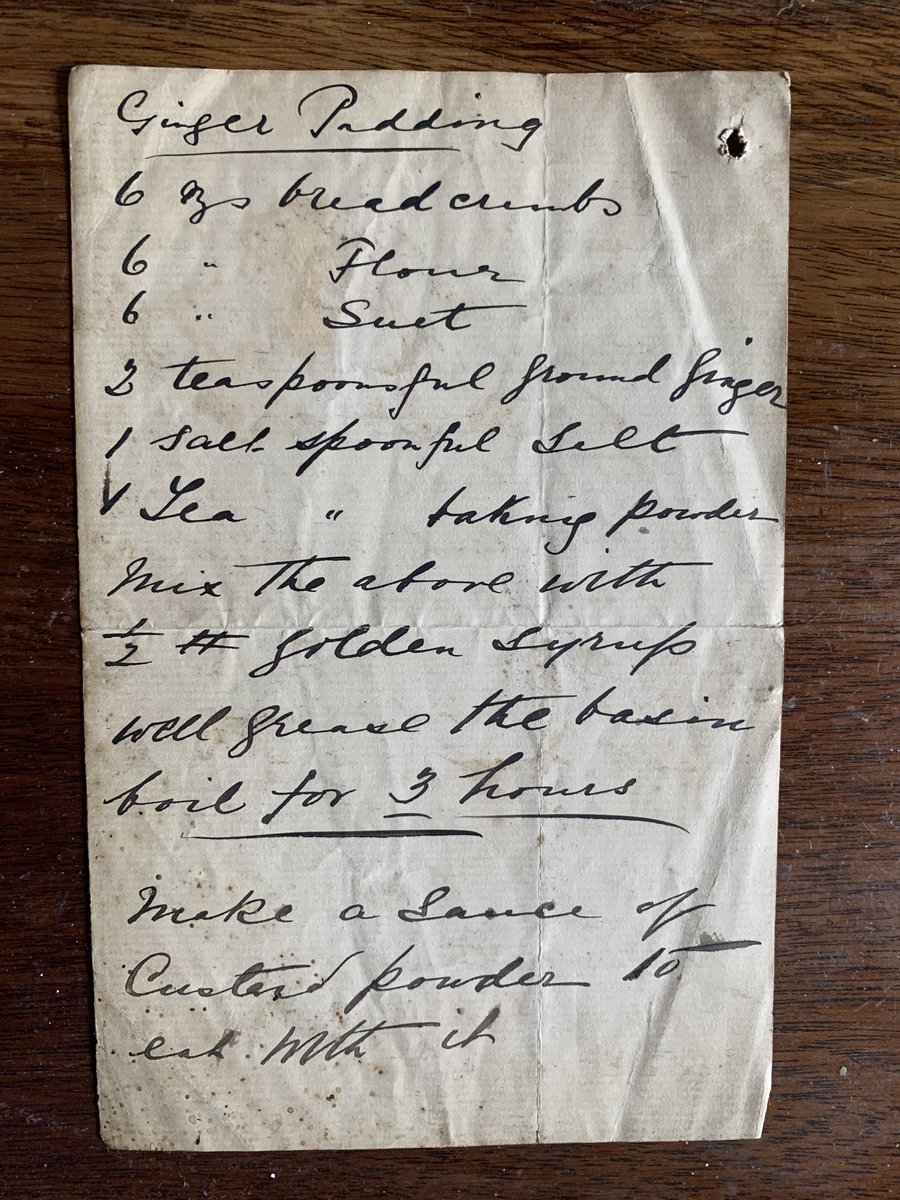 Ginger Pudding
6 ozs breadcrumbs
6 " Flour
6 " Suet
2 teaspoonsful ground ginger
1 salt-spoonful Salt
1 Tea " baking powder
Mix the above with
½ # golden syrup
well grease the basin
boil for 3 hours
Make a Sauce of
Custard powder to
eat with it